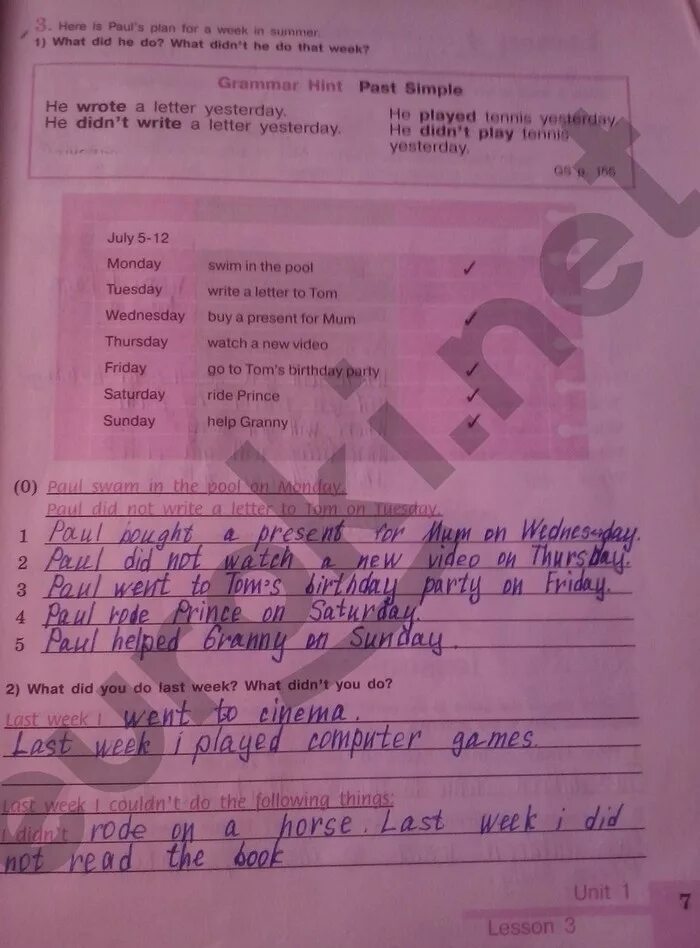 3. Here is Paul's plan for a week in summer.
1) What did he do? What didn't he do that week?
Grammar Hint Past Simple
He wrote a letter yesterday.
He didn't write a letter yesterday.
He played tennis yesterday.
He didn't play tennis
yesterday.
GS p. 166
July 5-12
Monday swim in the pool ✓
Tuesday write a letter to Tom
Wednesday buy a present for Mum ✓
Thursday watch a new video
Friday go to Tom's birthday party ✓
Saturday ride Prince ✓
Sunday help Granny ✓
(0) Paul swam in the pool on Monday.
Paul did not write a letter to Tom on Tuesday.
1 Paul bought a present for Mum on Wednesday.
2 Paul did not watch a new video on Thursday.
3 Paul went to Tom's birthday party on Friday.
4 Paul rode Prince on Saturday.
5 Paul helped Granny on Sunday.
2) What did you do last week? What didn't you do?
Last week I went to cinema.
Last week i played computer games.
Last week I couldn't do the following things:
I didn't rode on a horse. Last week i did
not read the book
Unit 1
Lesson 3
7
euroki.net